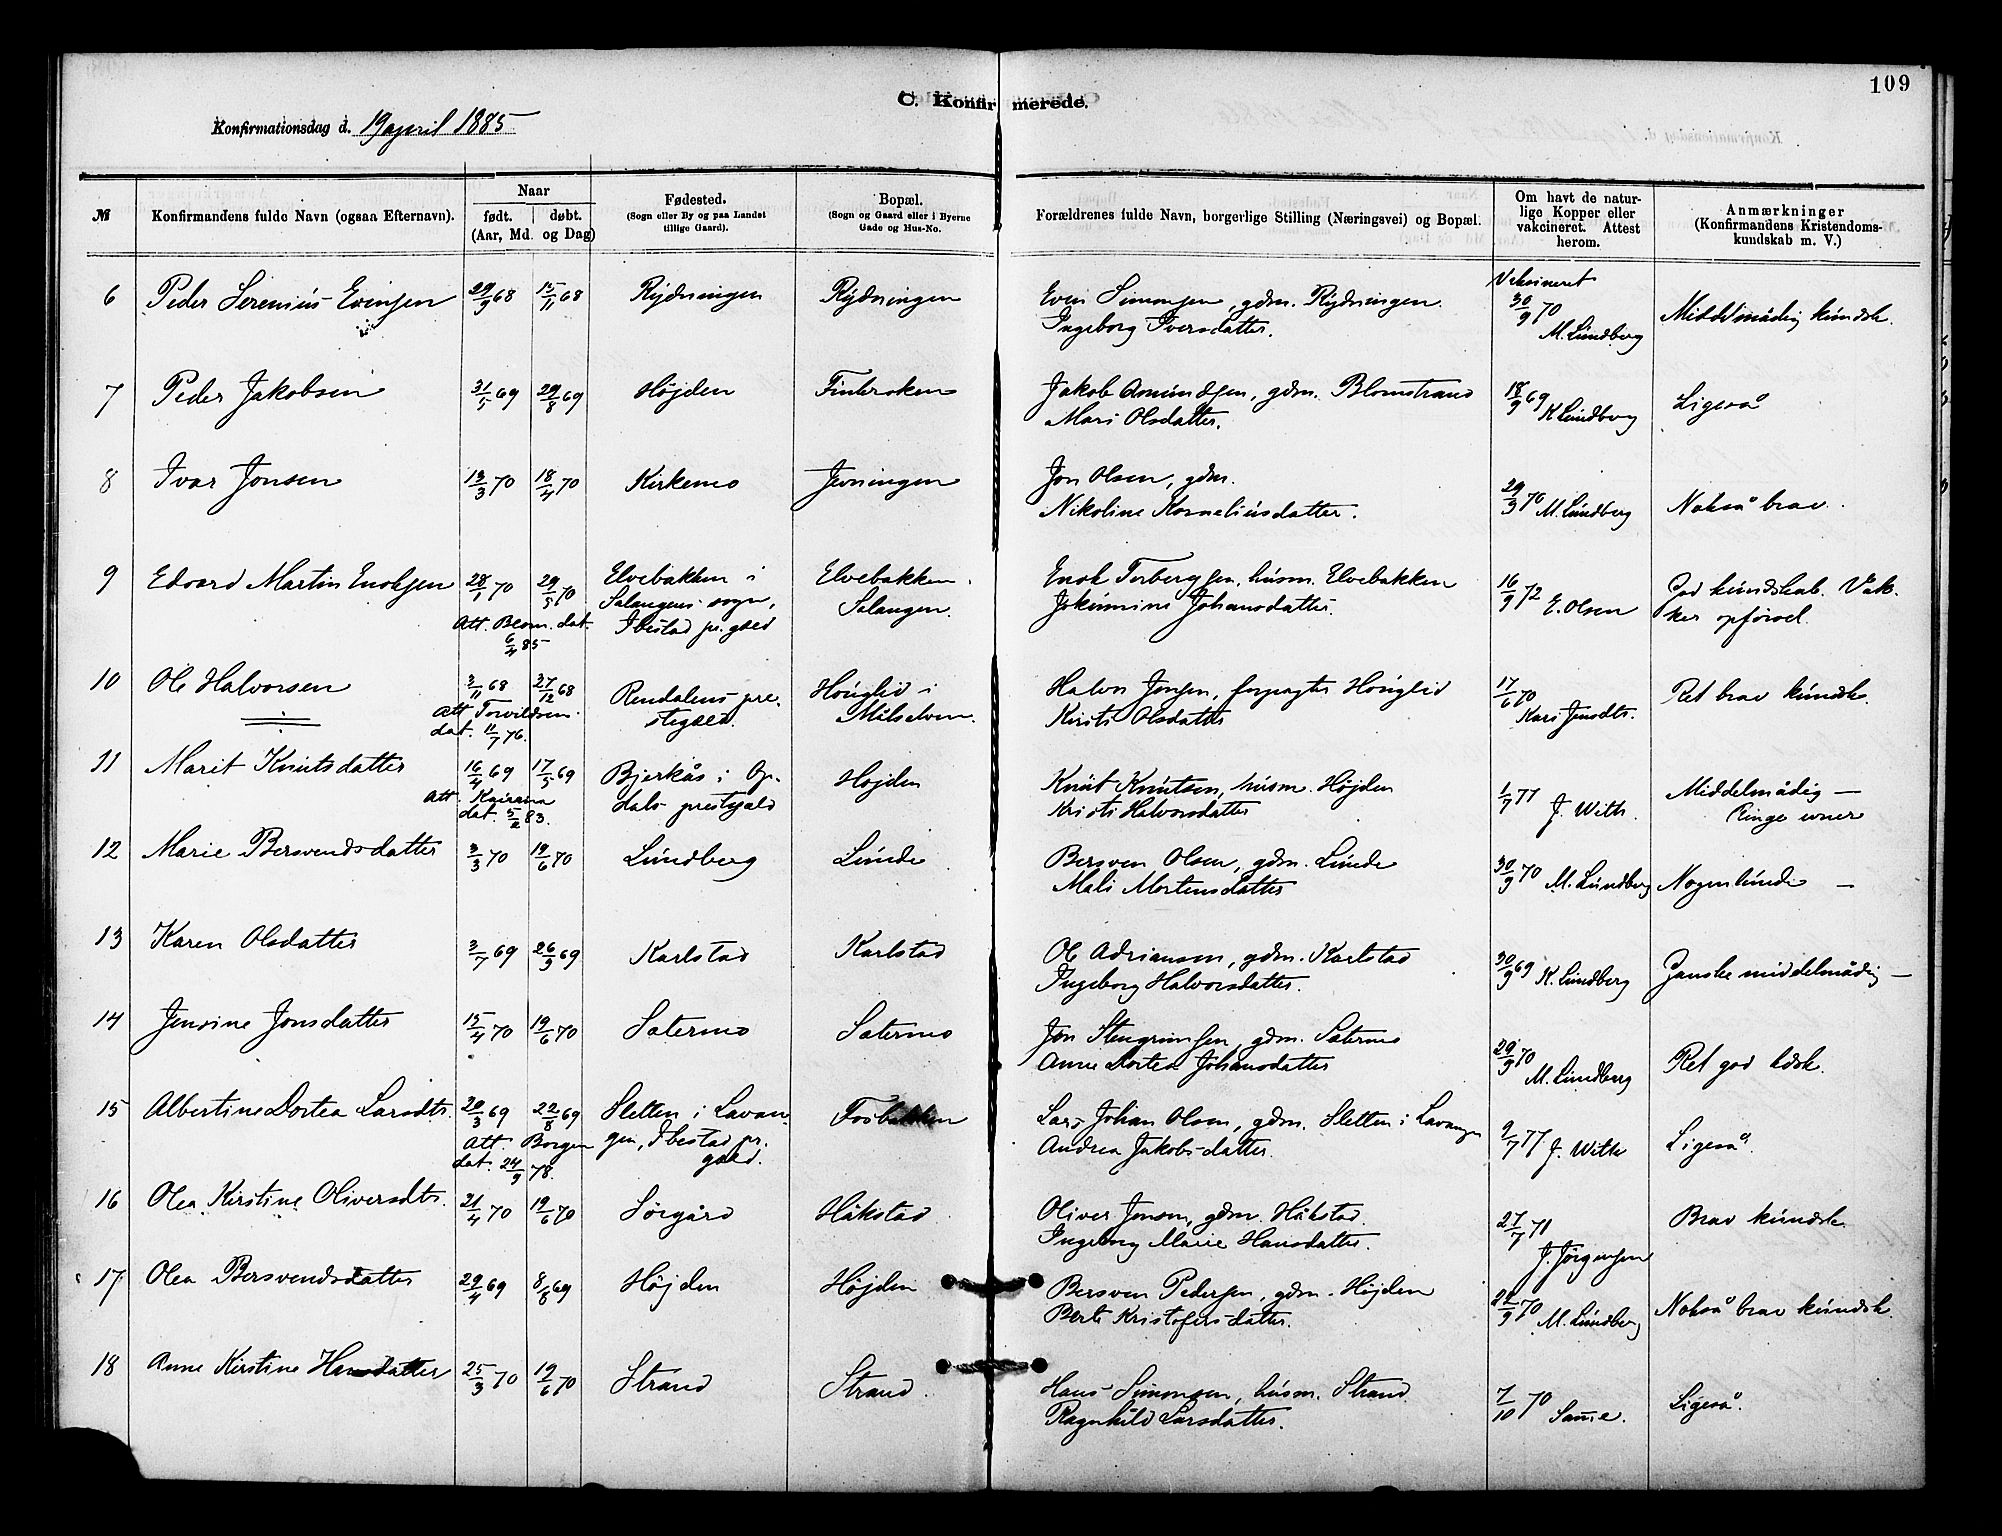 109
C. Konfirmerede.
Konfirmationsdag d. 19 april 1885
№ Konfirmandens fulde Navn (ogsaa Efternavn). Naar født. (Aar, Md. døbt. og Dag) Fødested. (Sogn eller By og paa Landet tillige Gaard). Bopæl. (Sogn og Gaard eller i Byerne Gade og Hus-No. Forældrenes fulde Navn, borgerlige Stilling (Næringsvei) og Bopæl. Om havt de naturlige Kopper eller vakcineret. Attest herom. Anmærkninger (Konfirmandens Kristendomskundskab m. V.)
6 Peder Serenius Evensen 29/9 68 15/11 68 Rydningen Rydningen Even Simonsen, gdm. Rydningen Vaksineret 30/9 70
Ingeborg Iversdatter. M. Lundberg Middelmådig kundsk.
7 Peder Jakobsen 31/5 69 29/8 69 Højden Finbroken Jakob Amundsen, gdm. Blomstrand 18/9 69
Mari Olsdatter. K Lundberg Ligeså
8 Ivar Jonsen 13/3 70 18/4 70 Kirkemo Jevningen Jon Olsen, gdm.
Nikoline Korneliusdatter. 29/3 70 M. Lundberg Nokså brav.
9 Edvard Martin Enoksen 28/1 70 29/5 70 Elvebakken i Elvebakken. Enok Torbergsen, husm. Elvebakken 16/9 72 God kundskab. Vak-
Att. Blom. dat. 6/4 85 Salangens sogn, Salangen. Jokumine Johansdatter. E. Olsen ker opførsel.
Ibestad pr.gæld
10 Ole Halvorsen 3/11 68 27/12 68 Rendalens pre- Houglid i Halvor Jensen, forpagter Houglid 17/6 70 Ret brav kundsk.
Att Torvildsen. dat. 11/7 76. stegæld. Målselven. Kirsti Olsdatter Kari Jensdtr.
11 Marit Knutsdatter 16/4 69 17/5 69 Bjerkås i Op- Højden Knut Knutsen, husm. Højden 1/7 71 Middelmådig —
Att. dat. 5/2 83. dals prestegjæld Kristi Halvorsdatter J. With Ringe evner
12 Marie Bersvendsdatter 3/3 70 19/6 70 Lundberg Lunde Bersven Olsen, gdm. Lunde 30/9 70
Mali Mortensdatter M. Lundberg Nogenlunde —
13 Karen Olsdatter 3/7 69 26/9 69 Karlstad Karlstad Ole Adriansen, gdm. Karlstad 30/9 69
Ingeborg Halvorsdatter. K. Lundberg Ganske middelmådig —
14 Jensine Jonsdatter 15/4 70 19/6 70 Satermo Satermo Jon Stengrimsen, gdm. Satermo 29/9 70
Anne Dortea Johansdatter M. Lundberg Ret god kdsk.
15 Albertine Dortea Larsdtr. 20/3 69 22/8 69 Sletten i Lavan- Fosbakken Lars Johan Olsen, gdm. Sletten i Lavangen 9/7 77
Att. Borgen dat. 24/9 78. gen, Ibestad pr. gæld. Andrea Jakobsdatter. J. With Ligeså.
16 Olea Kirstine Oliversdtr. 21/4 70 19/6 70 Sørgård Håkstad Oliver Jensen, gdm. Håkstad. 27/7 71 Brav kundsk.
Ingeborg Marie Hansdatter. J. Jørgensen
17 Olea Bersvendsdatter 29/4 69 8/8 69 Højden Højden Bersven Pedersen, gdm. Højden 22/9 70 Nokså brav kundsk
Berte Kristofersdatter. M. Lundberg
18 Anne Kirstine Hansdatter 25/3 70 19/6 70 Strand Strand. Hans Simonsen, husm. Strand 7/10 70 Ligeså.
Ragnhild Larsdatter. Samme.